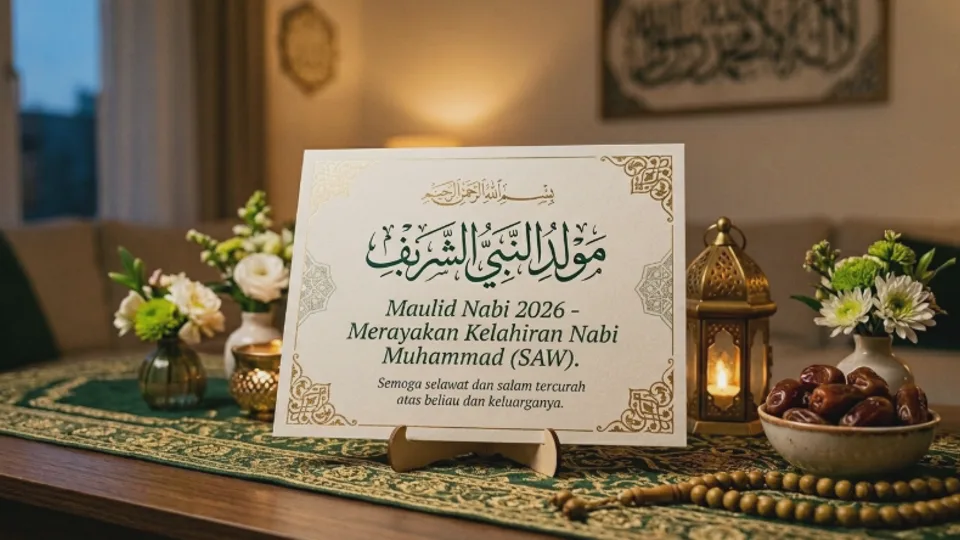 بسم الله الرحمن الرحيم
مَوْلِدُ النَّبِيُّ الشَّرِيفِ
Maulid Nabi 2026 –
Merayakan Kelahiran Nabi
Muhammad (SAW).
Semoga selawat dan salam tercurah
atas beliau dan keluarganya.